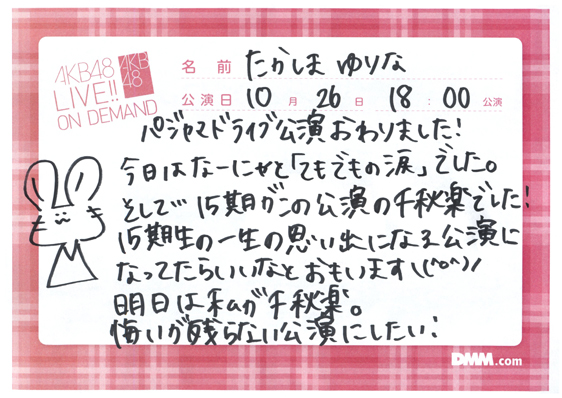 AKB48
LIVE!!
ON DEMAND
AKB
48
名 前 たかしま ゆりな
公演日 10 月 26 日 18 : 00 公演
パジャマドライブ公演おわりました!
今日はなーにゃと「てもでもの涙」でした。
そして 15期が この公演の千秋楽でした!
15期生の一生の思い出になる公演に
なってたらいいなとおもいます\(^o^)/
明日は私が千秋楽。
悔いが残らない公演にしたい!
DMM.com